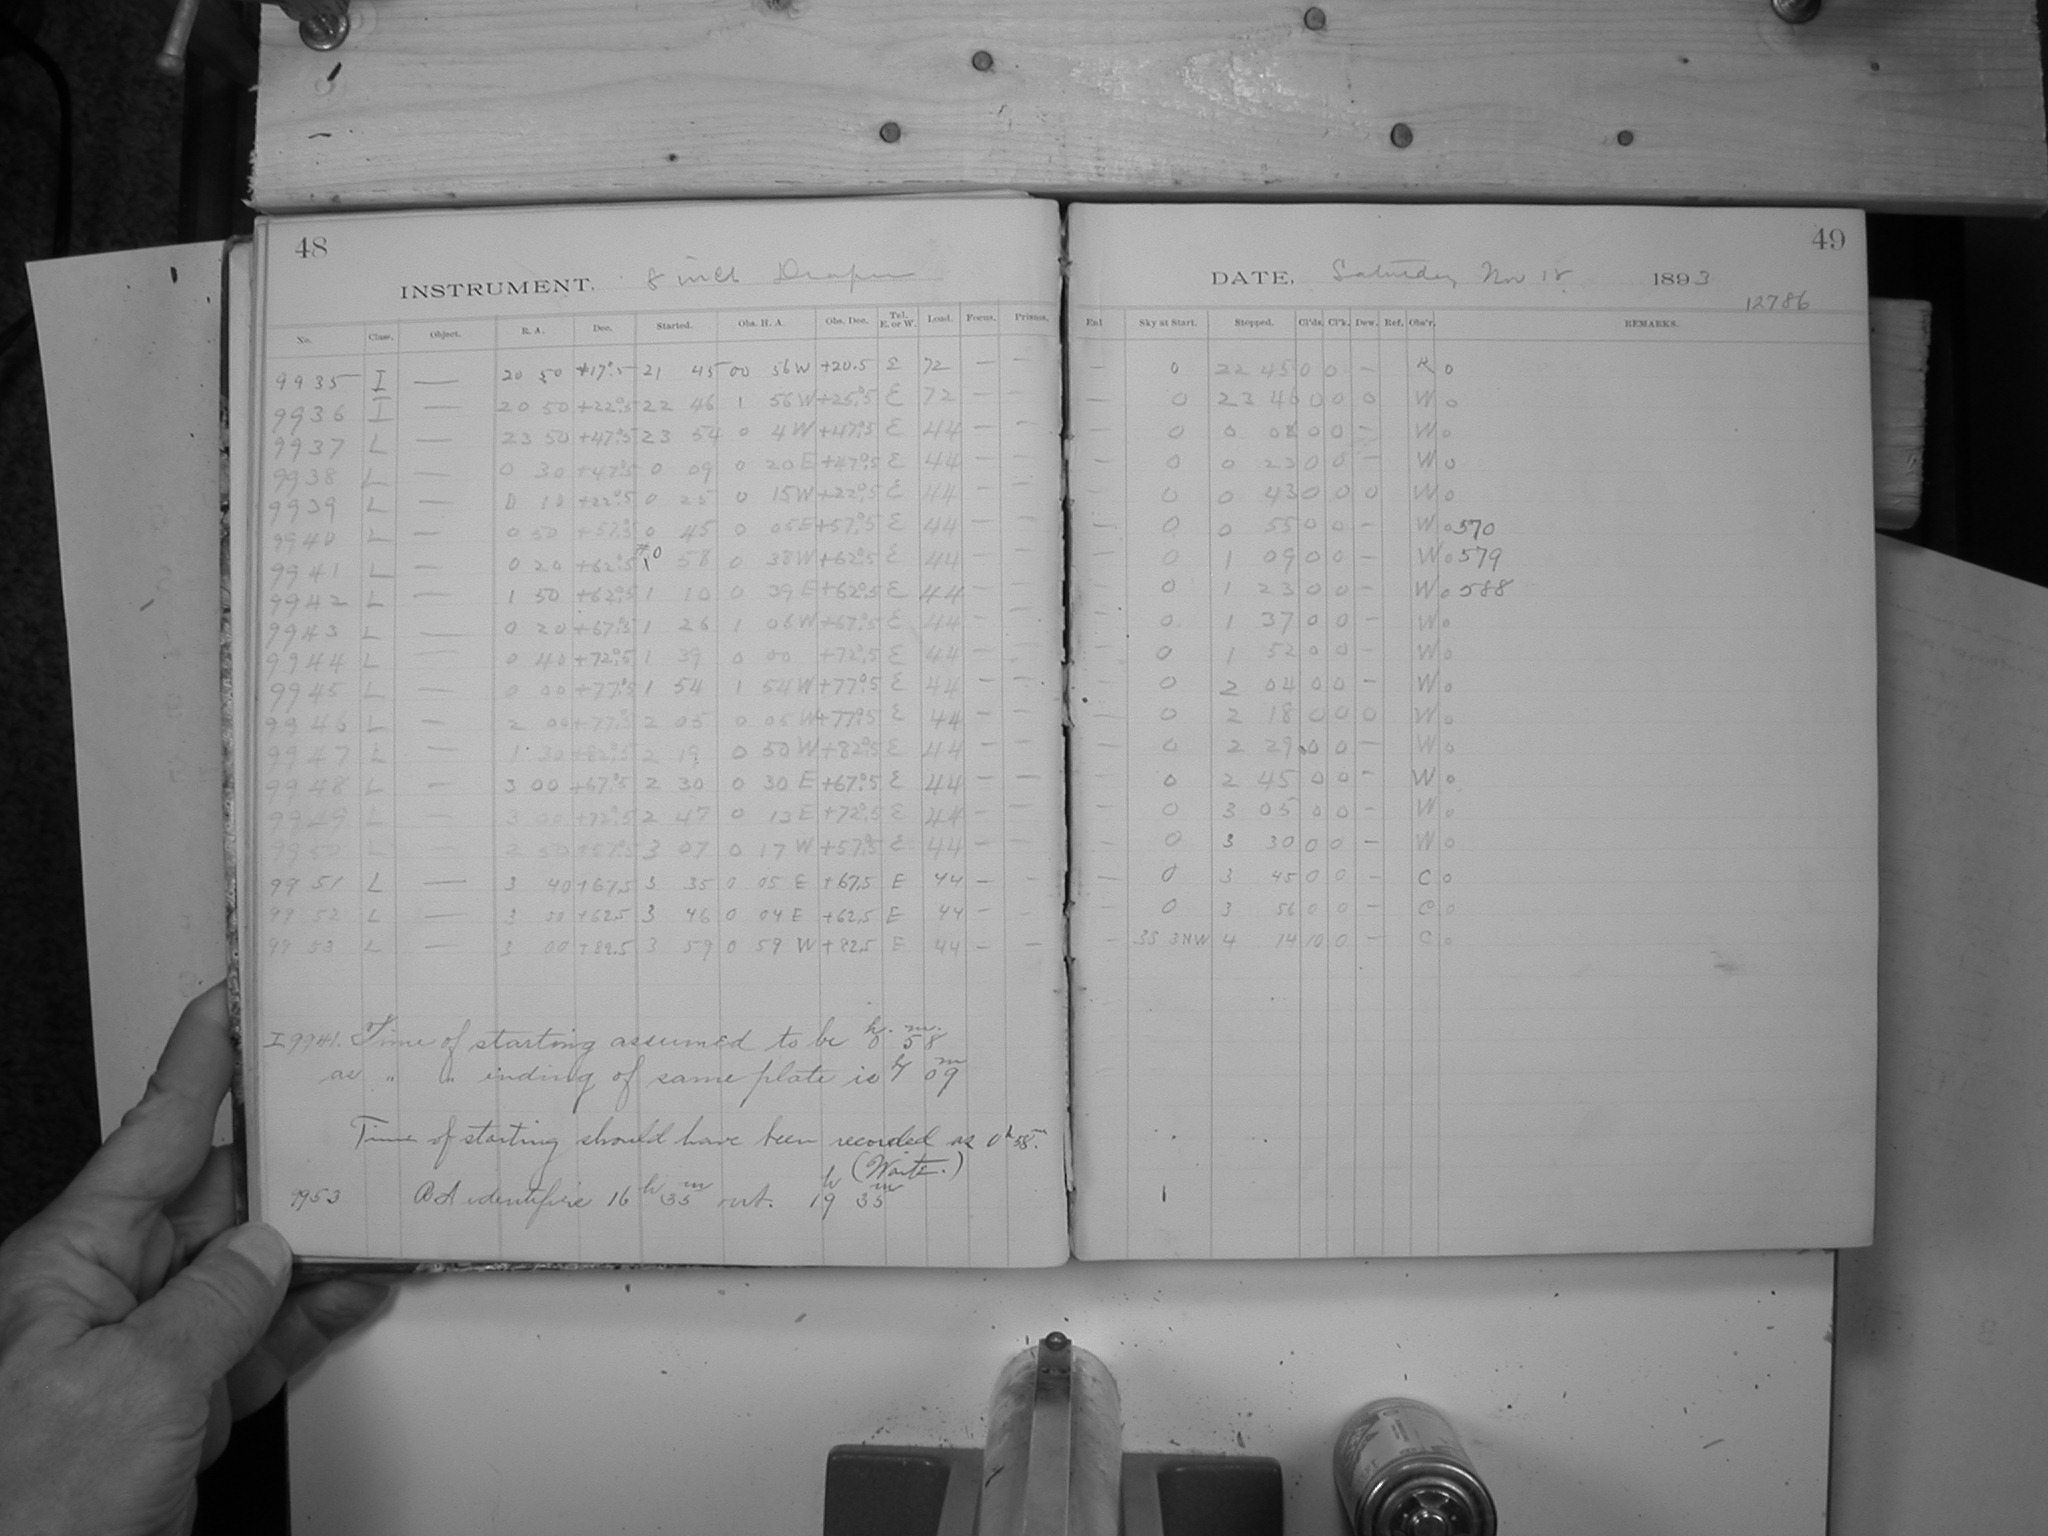 48
INSTRUMENT. 8 inch Draper
No. Class. Object. R. A. Dec. Started. Obs. H. A. Obs. Dec. Tel. E. or W. Load. Focus. Prisms.
9935 I — 20 50 +17°.5 21 45 00 56W +20.5 E 72 — —
9936 I — 20 50 +22°.5 22 46 1 56W +25°.5 E 72 — —
9937 L — 23 50 +47°.5 23 54 0 4W +47°.5 E 44 — —
9938 L — 0 30 +47°.5 0 09 0 20E +47°.5 E 44 — —
9939 L — 0 10 +22°.5 0 25 0 15W +22°.5 E 44 — —
9940 L — 0 50 +57°.5 0 45 0 05E +57°.5 E 44 — —
9941 L — 0 20 +62°.5 0 58 0 38W +62°.5 E 44 — —
9942 L — 1 50 +62°.5 1 10 0 39E +62°.5 E 44 — —
9943 L — 0 20 +67°.5 1 26 1 06W +67°.5 E 44 — —
9944 L — 0 40 +72°.5 1 39 0 00 +72°.5 E 44 — —
9945 L — 0 00 +77°.5 1 54 1 54W +77°.5 E 44 — —
9946 L — 2 00 +77°.5 2 05 0 05W +77°.5 E 44 — —
9947 L — 1 30 +82°.5 2 19 0 50W +82°.5 E 44 — —
9948 L — 3 00 +67°.5 2 30 0 30E +67°.5 E 44 — —
9949 L — 3 00 +72°.5 2 47 0 13E +72°.5 E 44 — —
9950 L — 2 50 +57°.5 3 07 0 17W +57°.5 E 44 — —
9951 L — 3 40 +67.5 3 35 0 05 E +67.5 E 44 — —
9952 L — 3 50 +62.5 3 46 0 04 E +62.5 E 44 — —
9953 L — 3 00 +82.5 3 59 0 59 W +82.5 E 44 — —
I 9941. Time of starting assumed to be 0h. 58m.
as " " ending of same plate is 1h 09m
Time of starting should have been recorded as 0h 58m.
(Waite.)
9953 identifire 16h 35m 19h 35m
49
DATE, Saturday Nov 18 1893
12786
Sky at Start. Stopped. Cl'ds. Cl'k. Dew. Ref. Obs'r. REMARKS.
— 0 22 45 0 0 — R o
— 0 23 46 0 0 0 W o
— 0 0 08 0 0 — W o
— 0 0 23 0 0 — W o
— 0 0 43 0 0 0 W o
— 0 0 55 0 0 — W o 570
— 0 1 09 0 0 — W o 579
— 0 1 23 0 0 — W o 588
— 0 1 37 0 0 — W o
— 0 1 52 0 0 — W o
— 0 2 04 0 0 — W o
— 0 2 18 0 0 0 W o
— 0 2 29 0 0 — W o
— 0 2 45 0 0 — W o
— 0 3 05 0 0 — W o
— 0 3 30 0 0 — W o
— 0 3 45 0 0 — C o
— 0 3 56 0 0 — C o
— 3S 3NW 4 14 10 0 — C o